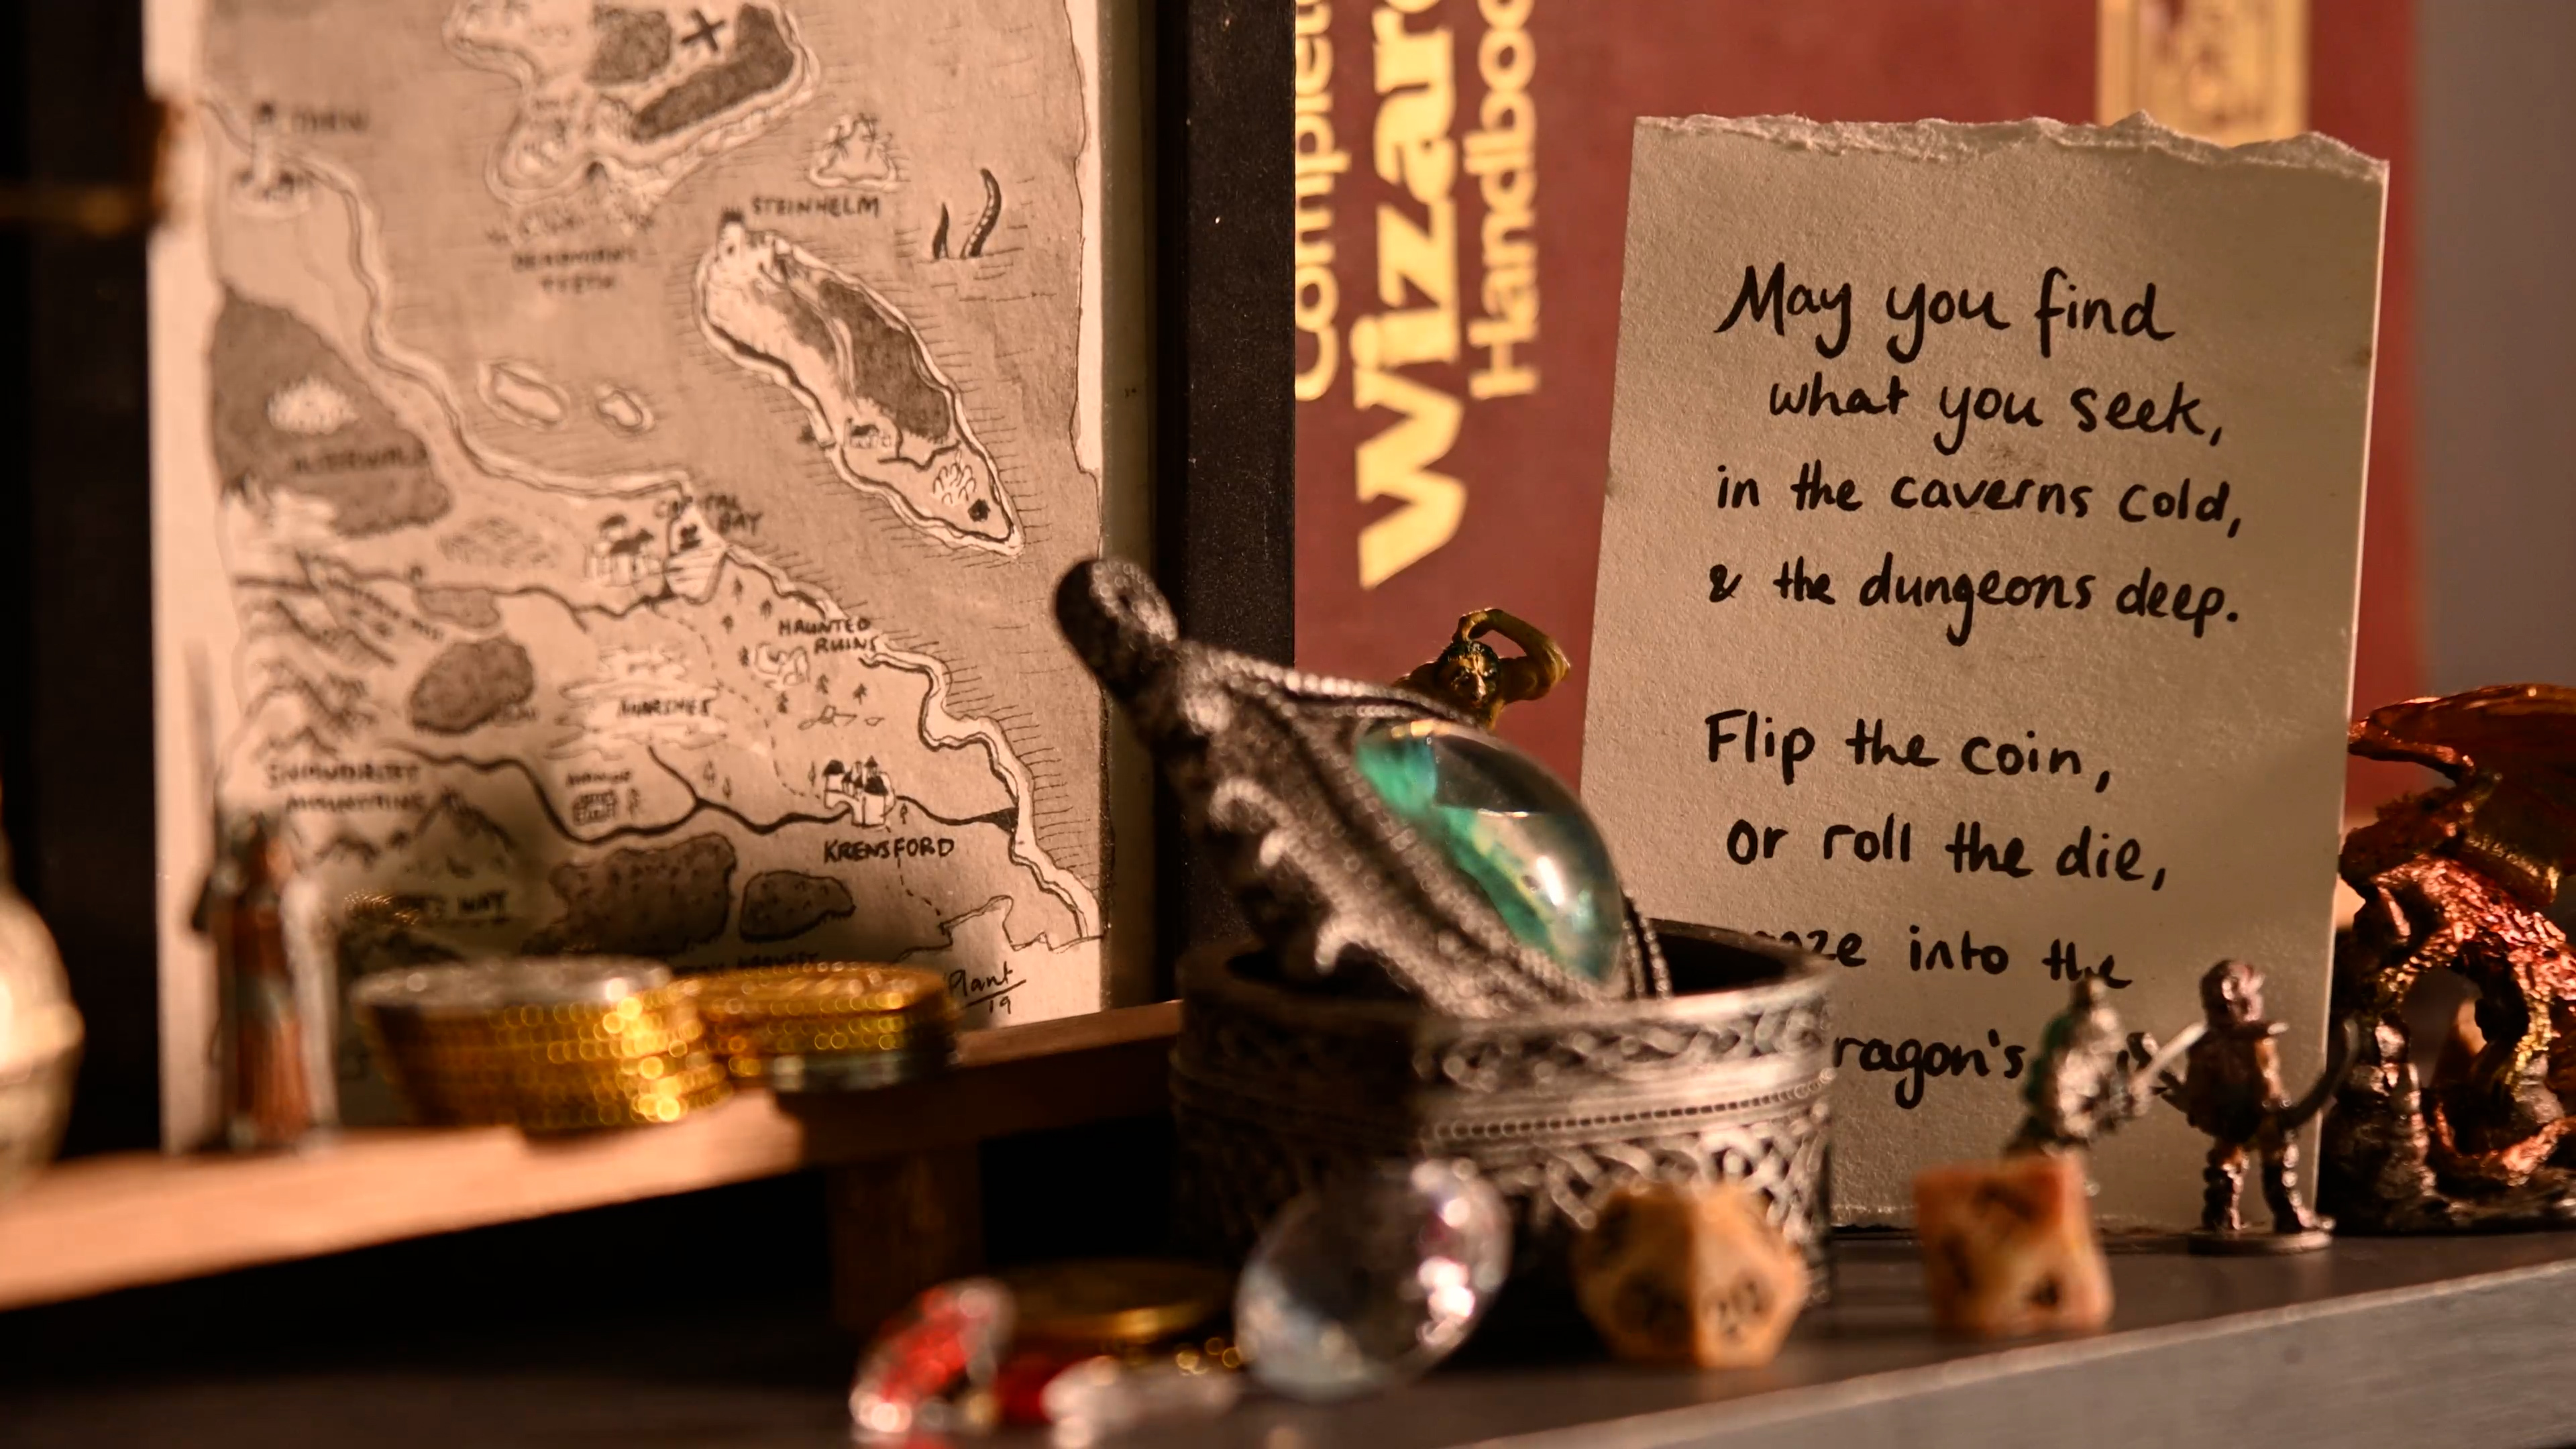 STEINHELM
HAUNTED
RUINS
MARSHES
KRENSFORD
Plant
19
Complete
Wizard
Handboo
May you find
what you seek,
in the caverns cold,
& the dungeons deep.
Flip the coin,
or roll the die,
ze into the
ragon's